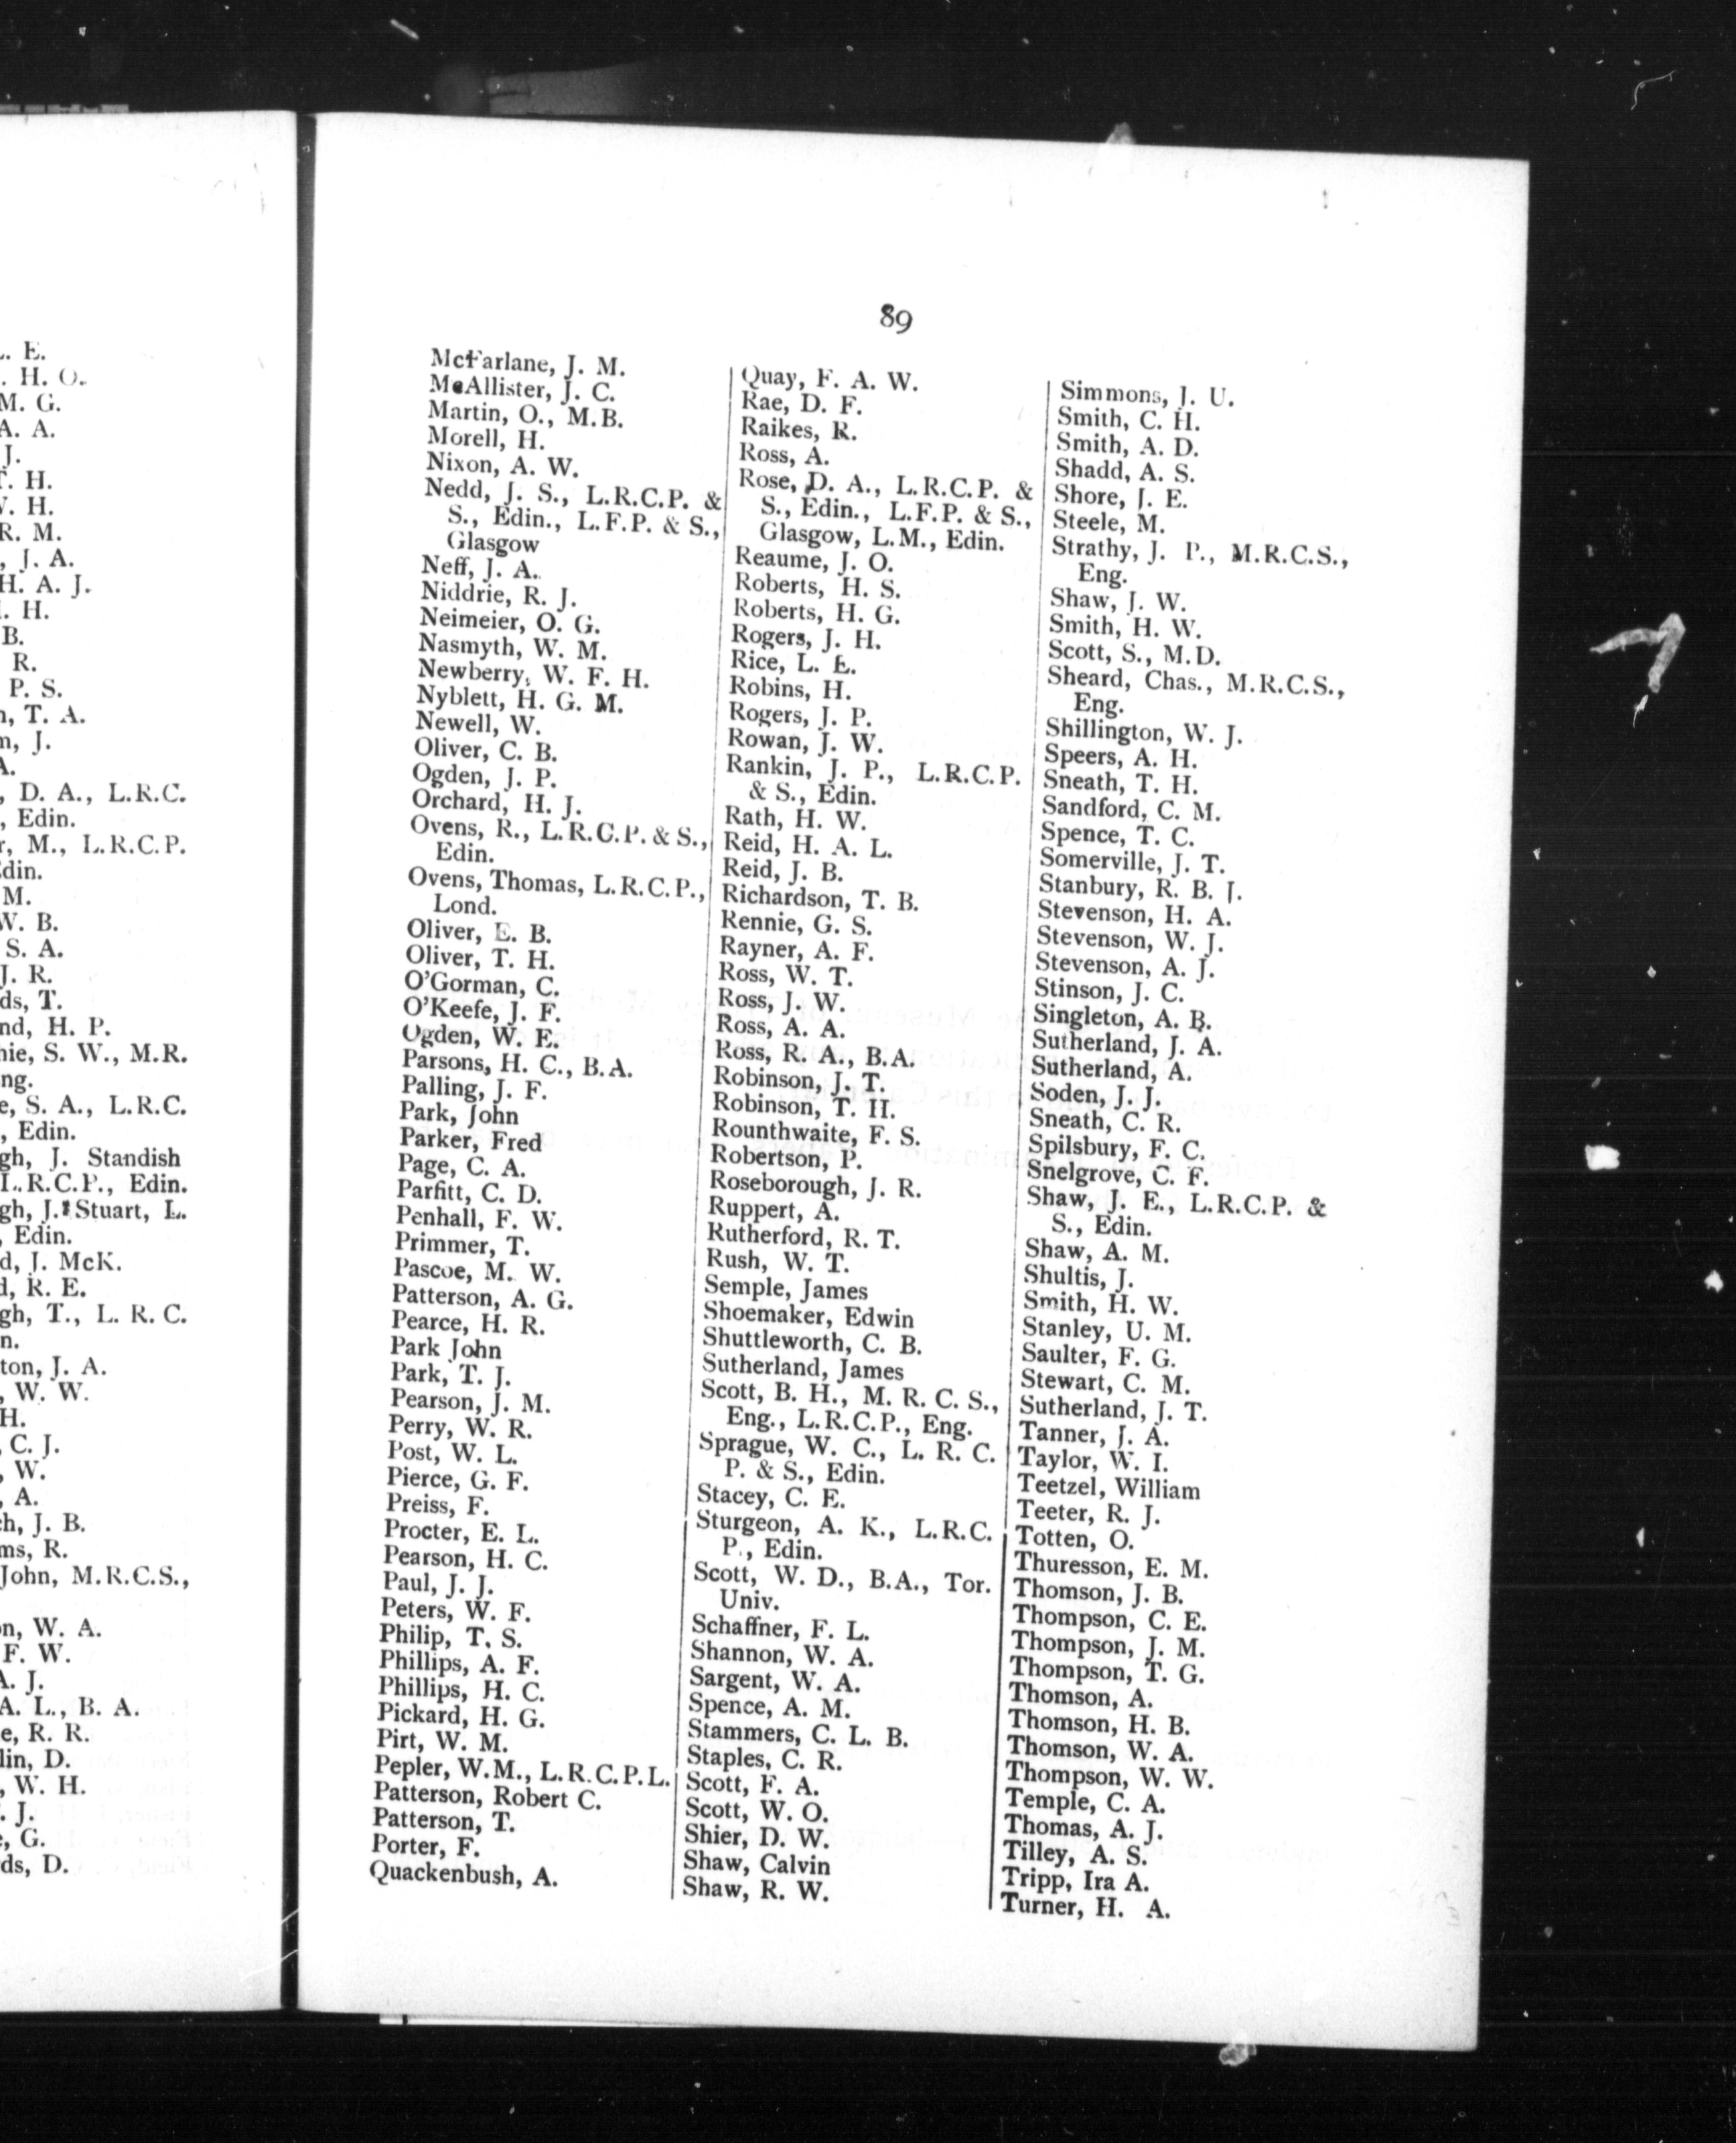 89
McFarlane, J. M.
McAllister, J. C.
Martin, O., M.B.
Morell, H.
Nixon, A. W.
Nedd, J. S., L.R.C.P. &
S., Edin., L.F.P. & S.,
Glasgow
Neff, J. A.
Niddrie, R. J.
Neimeier, O. G.
Nasmyth, W. M.
Newberry, W. F. H.
Nyblett, H. G. M.
Newell, W.
Oliver, C. B.
Ogden, J. P.
Orchard, H. J.
Ovens, R., L.R.C.P. & S.,
Edin.
Ovens, Thomas, L.R.C.P.,
Lond.
Oliver, E. B.
Oliver, T. H.
O'Gorman, C.
O'Keefe, J. F.
Ogden, W. E.
Parsons, H. C., B.A.
Palling, J. F.
Park, John
Parker, Fred
Page, C. A.
Parfitt, C. D.
Penhall, F. W.
Primmer, T.
Pascoe, M. W.
Patterson, A. G.
Pearce, H. R.
Park John
Park, T. J.
Pearson, J. M.
Perry, W. R.
Post, W. L.
Pierce, G. F.
Preiss, F.
Procter, E. L.
Pearson, H. C.
Paul, J. J.
Peters, W. F.
Philip, T. S.
Phillips, A. F.
Phillips, H. C.
Pickard, H. G.
Pirt, W. M.
Pepler, W.M., L.R.C.P.L.
Patterson, Robert C.
Patterson, T.
Porter, F.
Quackenbush, A.
Quay, F. A. W.
Rae, D. F.
Raikes, R.
Ross, A.
Rose, D. A., L.R.C.P. &
S., Edin., L.F.P. & S.,
Glasgow, L.M., Edin.
Reaume, J. O.
Roberts, H. S.
Roberts, H. G.
Rogers, J. H.
Rice, L. E.
Robins, H.
Rogers, J. P.
Rowan, J. W.
Rankin, J. P., L.R.C.P.
& S., Edin.
Rath, H. W.
Reid, H. A. L.
Reid, J. B.
Richardson, T. B.
Rennie, G. S.
Rayner, A. F.
Ross, W. T.
Ross, J. W.
Ross, A. A.
Ross, R. A., B.A.
Robinson, J. T.
Robinson, T. H.
Rounthwaite, F. S.
Robertson, P.
Roseborough, J. R.
Ruppert, A.
Rutherford, R. T.
Rush, W. T.
Semple, James
Shoemaker, Edwin
Shuttleworth, C. B.
Sutherland, James
Scott, B. H., M. R. C. S.,
Eng., L.R.C.P., Eng.
Sprague, W. C., L. R. C.
P. & S., Edin.
Stacey, C. E.
Sturgeon, A. K., L.R.C.
P., Edin.
Scott, W. D., B.A., Tor.
Univ.
Schaffner, F. L.
Shannon, W. A.
Sargent, W. A.
Spence, A. M.
Stammers, C. L. B.
Staples, C. R.
Scott, F. A.
Scott, W. O.
Shier, D. W.
Shaw, Calvin
Shaw, R. W.
Simmons, J. U.
Smith, C. H.
Smith, A. D.
Shadd, A. S.
Shore, J. E.
Steele, M.
Strathy, J. P., M.R.C.S.,
Eng.
Shaw, J. W.
Smith, H. W.
Scott, S., M.D.
Sheard, Chas., M.R.C.S.,
Eng.
Shillington, W. J.
Speers, A. H.
Sneath, T. H.
Sandford, C. M.
Spence, T. C.
Somerville, J. T.
Stanbury, R. B. J.
Stevenson, H. A.
Stevenson, W. J.
Stevenson, A. J.
Stinson, J. C.
Singleton, A. B.
Sutherland, J. A.
Sutherland, A.
Soden, J. J.
Sneath, C. R.
Spilsbury, F. C.
Snelgrove, C. F.
Shaw, J. E., L.R.C.P. &
S., Edin.
Shaw, A. M.
Shultis, J.
Smith, H. W.
Stanley, U. M.
Saulter, F. G.
Stewart, C. M.
Sutherland, J. T.
Tanner, J. A.
Taylor, W. I.
Teetzel, William
Teeter, R. J.
Totten, O.
Thuresson, E. M.
Thomson, J. B.
Thompson, C. E.
Thompson, J. M.
Thompson, T. G.
Thomson, A.
Thomson, H. B.
Thomson, W. A.
Thompson, W. W.
Temple, C. A.
Thomas, A. J.
Tilley, A. S.
Tripp, Ira A.
Turner, H. A.